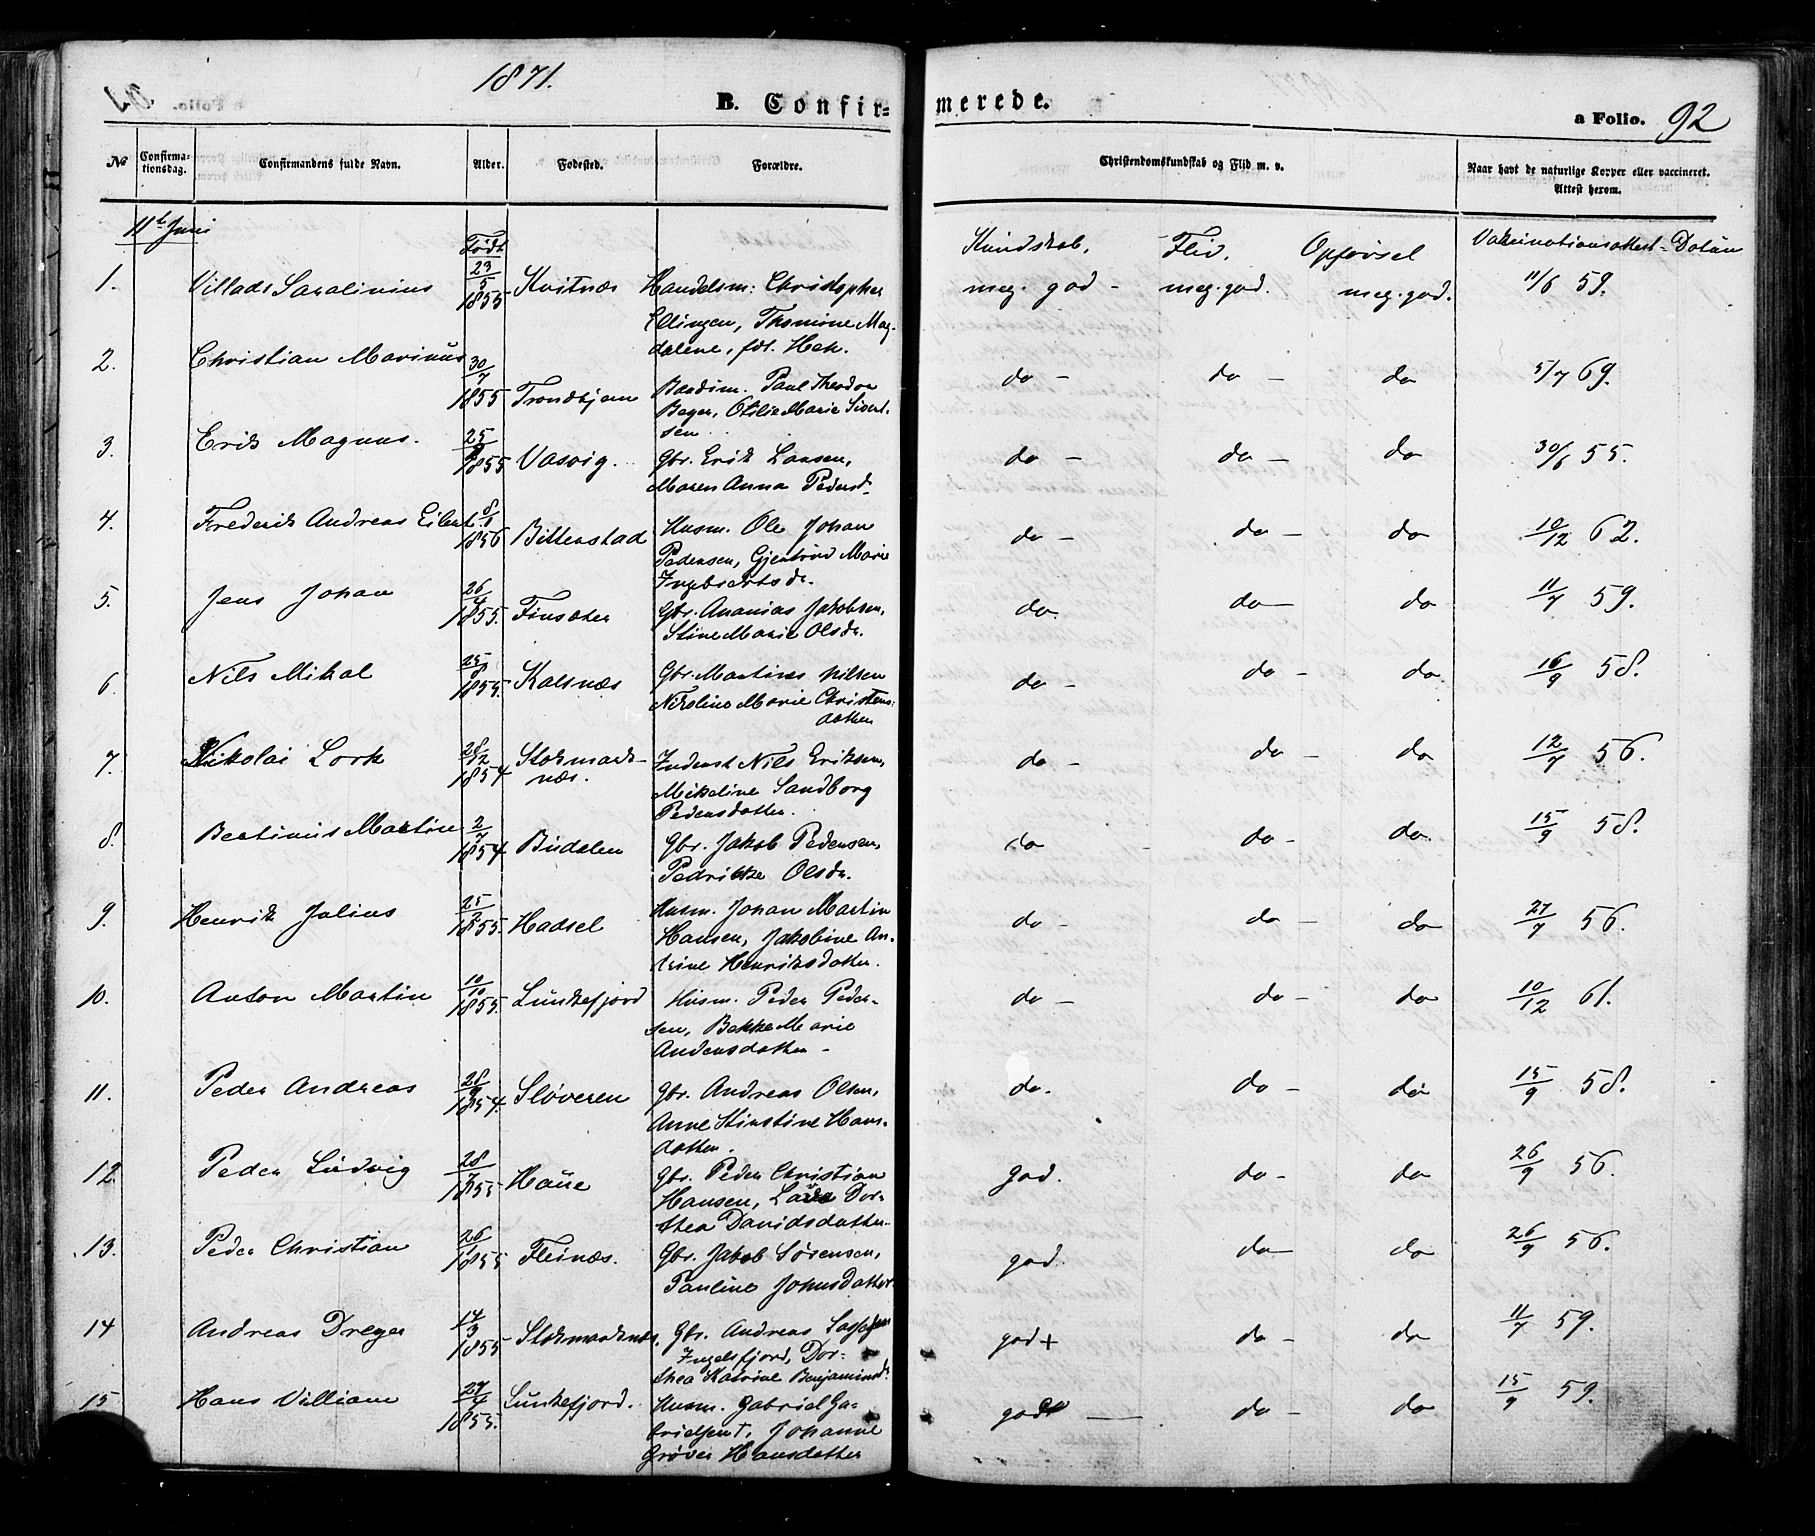 1871.
B. Confirmerede.
a Folio. 92
No Confirmationsdag. Confirmandens fulde Navn. Alder. Fødested. Forældre. Christendomskundskab og Flid m. v. Naar havt de naturlige Kopper eller vaccineret. Attest herom.
11te Juni Født Kundskab, Flid, Opførsel Vaccinationsattest-Datum
1. Villads Saralinius 23/5 1855 Kvitnæs Handelsm: Christopher meg. god - meg. god. meg. god. 11/6 59.
Ellingen, Thomine Mag-
dalene, fød. Hek.
2. Christian Marinus 30/7 1855 Trondhjem Baadsm. Paul Theodor do - do - do 5/7 69.
Beyer, Otilie Marie Sivert-
sen
3. Erik Magnus. 25/ 1855 Vasvig. Gbr. Erik Larsen, do - do - do 30/6 55.
Maren Anna Pedersd.
4. Frederik Andreas Eilert 8/1 1856 Bitterstad Husm. Ole Johan do - do - do 10/12 62.
Pedersen, Gjertrud Marie
Ingebrigtsdr.
5. Jens Johan 26/4 1855. Finsæter Gbr. Ananias Jakobsen, do. do - do 11/7 59.
Stine Marie Olsdr.
6. Nils Mikal 25/8 1855. Kalsnæs Gbr. Martines Nilsen do - do - do. 16/9 58.
Nikoline Marie Christens-
datter
7. Nikolai Lork 28/12 1854 Stokmarks- Inderst Nils Eriksen, do - do - do 12/7 56.
næs. Mikaline Sandborg
Pedersdatter.
8. Bertinius Martin 2/7 1854 Budalen Gbr. Jakob Pedersen, do - do - do. 15/9 58.
Pedrikke Olsdr.
9. Henrik Julius 25/2 1855. Hadsel Husm. Johan Martin do - do - do 27/7 56.
Hansen, Jakobine An-
trine Henriksdatter.
10. Anton Martin 10/10 1855. Lunkefjord Husm. Peder Peder- do - do - do 10/12 61.
sen, Bekke Marie
Andersdatter -
11. Peder Andreas 28/9 1854. Sløveren Gbr. Andreas Olsen, do. do - do 15/9 58.
Anne Kirstine Hans-
datter.
12. Peder Ludvig 28/7 1855 Haue Gbr. Peder Christian god. do - do 26/9 56.
Hansen, Dor-
thea Davidsdatter.
13. Peder Christian 26/1 1855 Fleinæs. Gbr. Jakob Sørensen, god. do - do 26/9 56.
Pauline Johnsdatter
14 Andreas Dreyer 14/3 1855 Stokmarknæs. Gbr. Andreas god + do - do 11/7 59.
Ingelsfjord, Dor-
thea Katrine Benjaminsd.
15 Hans Villiam 27/4 1855. Lunkefjord. Husm. Gabriel Ga- godt do - do 15/9 59.
brielsen †, Johanne
Grøver Hansdatter